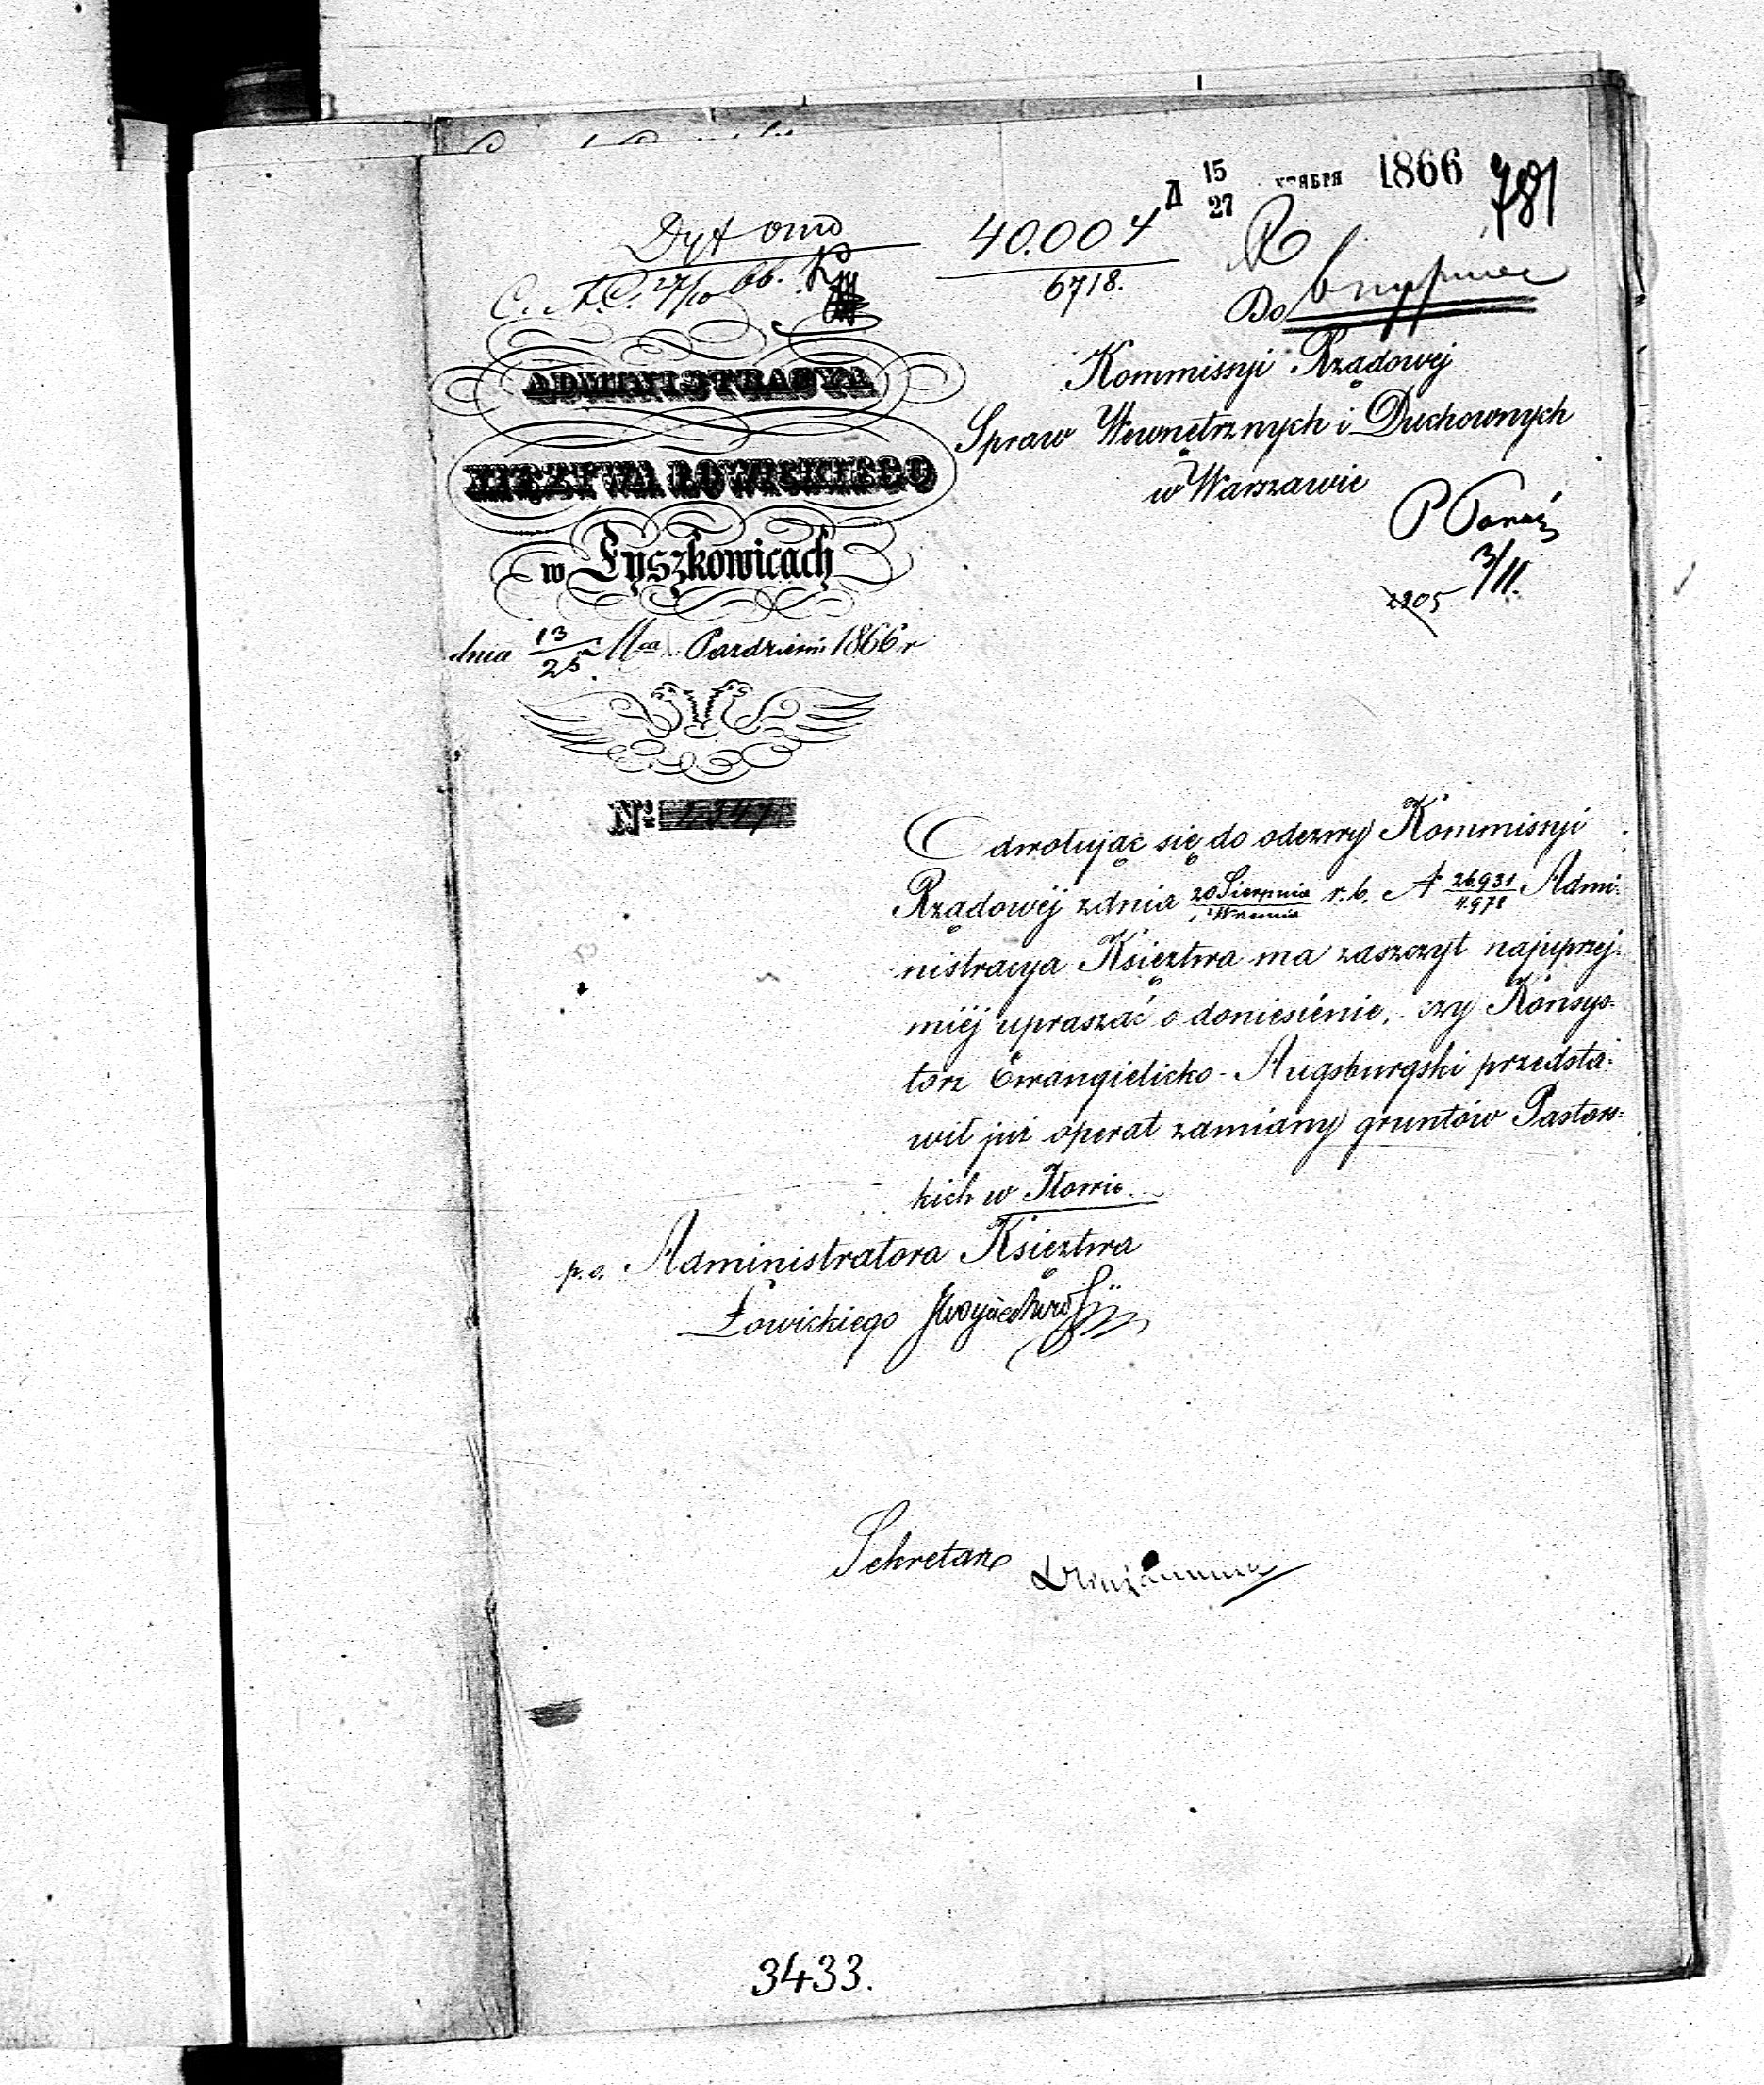 Д 15/27 ОКТЯБРЯ 1866 781
40.004
6718.
27/10 66.
Do
ADMINISTRACYA
XIĘZTWA ŁOWICKIEGO
w Łyszkowicach
dnia 13/25 Mca Pazdziern 1866 r
Kommissyi Rządowej
Spraw Wewnętrznych i Duchownych
w Warszawie
3/11.
2205
No 1347
Odwołując się do odezwy Kommissyi
Rządowéj z dnia 20 Sierpnia / 1 Wrzesnia r. b. N 26.931/4.978 Admi-
nistracya Księztwa ma zaszczyt najuprzej-
miéj upraszać o doniesiénie, czy Konsys-
torz Ewangielicko-Augsburgski przedsta-
wił już operat zamiany gruntów Pastors-
kich w Iłowie
p. o. Administratora Księztwa
Łowickiego
Sekretarz
3433.